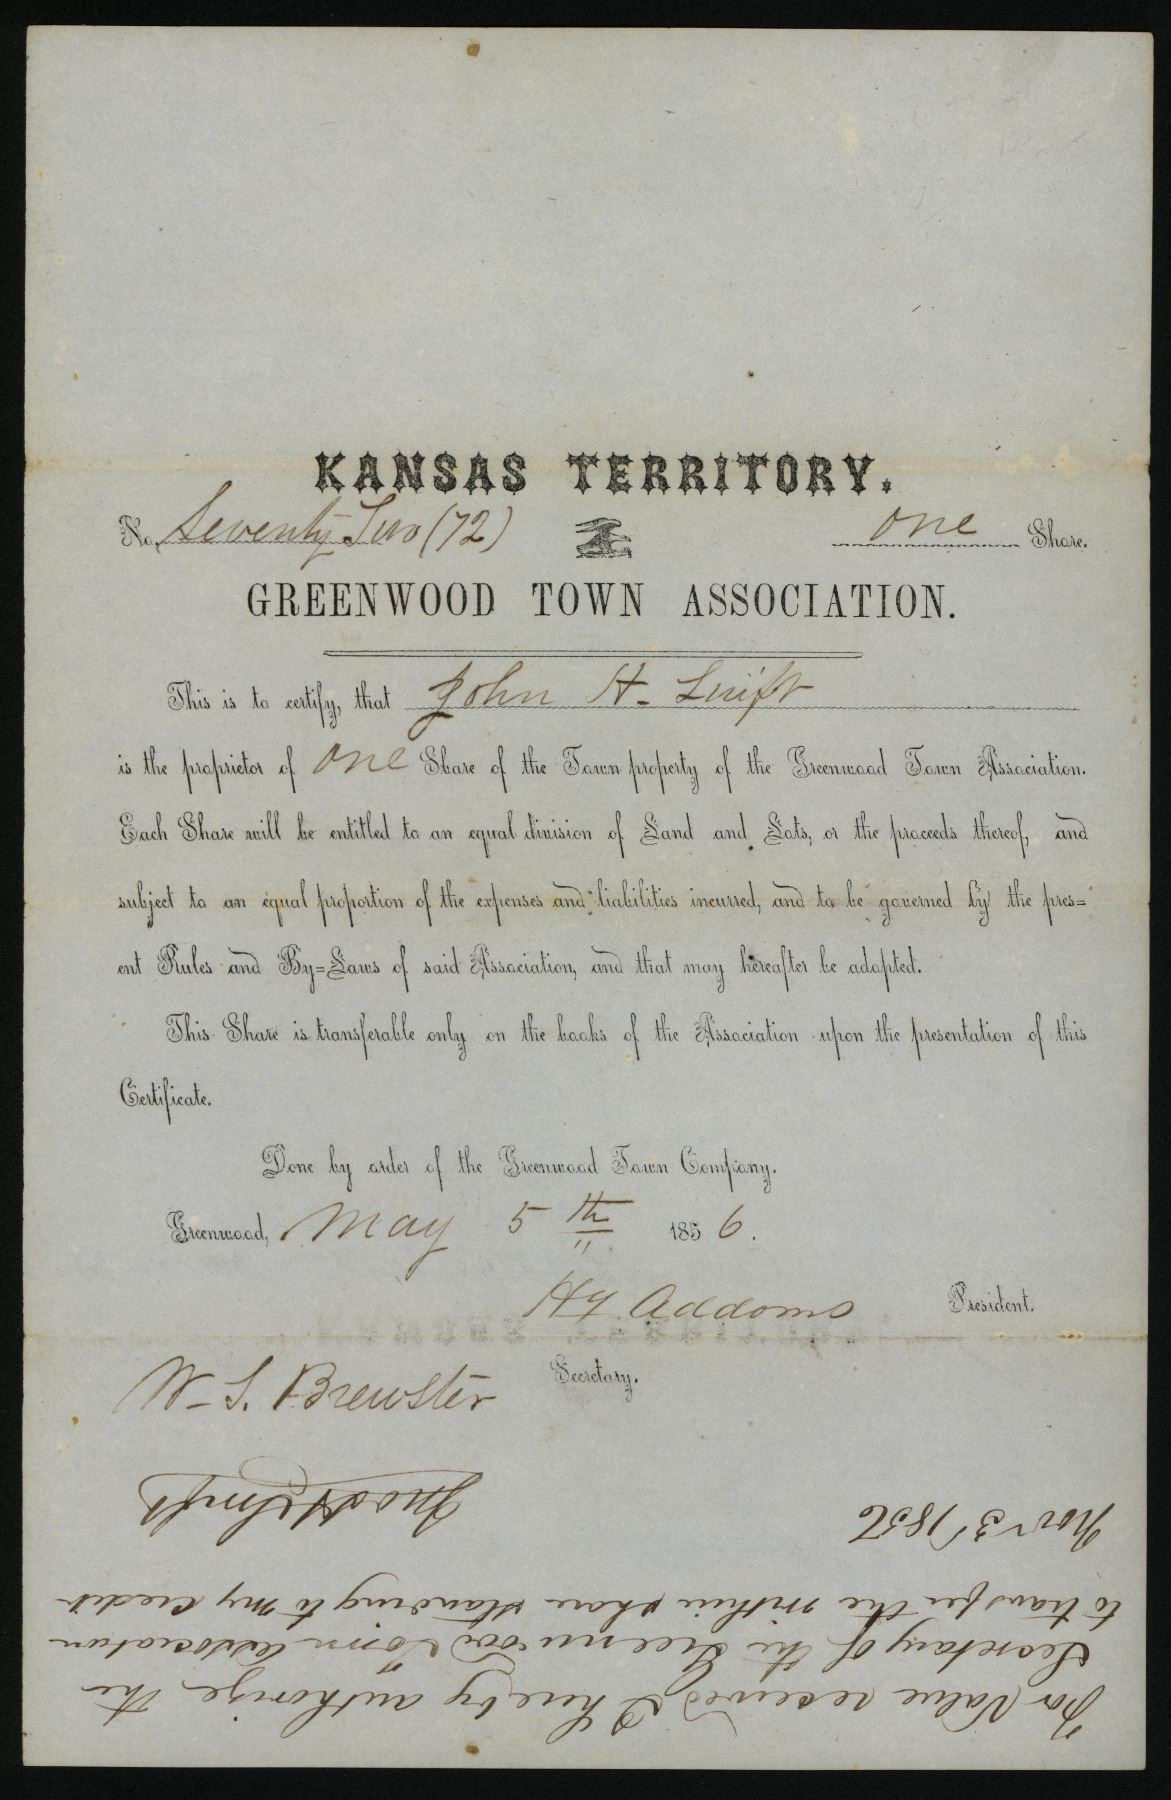 KANSAS TERRITORY.
No. Seventy Two (72) one Share.
GREENWOOD TOWN ASSOCIATION.
This is to certify, that John H. Swift
is the proprietor of one Share of the Town property of the Greenwood Town Association.
Each Share will be entitled to an equal division of Land and Lots, or the proceeds thereof, and
subject to an equal proportion of the expenses and liabilities incurred, and to be governed by the pres=
ent Rules and By=Laws of said Association, and that may hereafter be adopted.
This Share is transferable only on the books of the Association upon the presentation of this
Certificate.
Done by order of the Greenwood Town Company.
Greenwood, May 5th 1856.
Hy Addoms President.
W. S. Brewster Secretary.
For Value received I hereby authorize the
Secretary of the Greenwood Town Association
to transfer the within share standing to my credit
Nov 3/1856 Jno H Swift